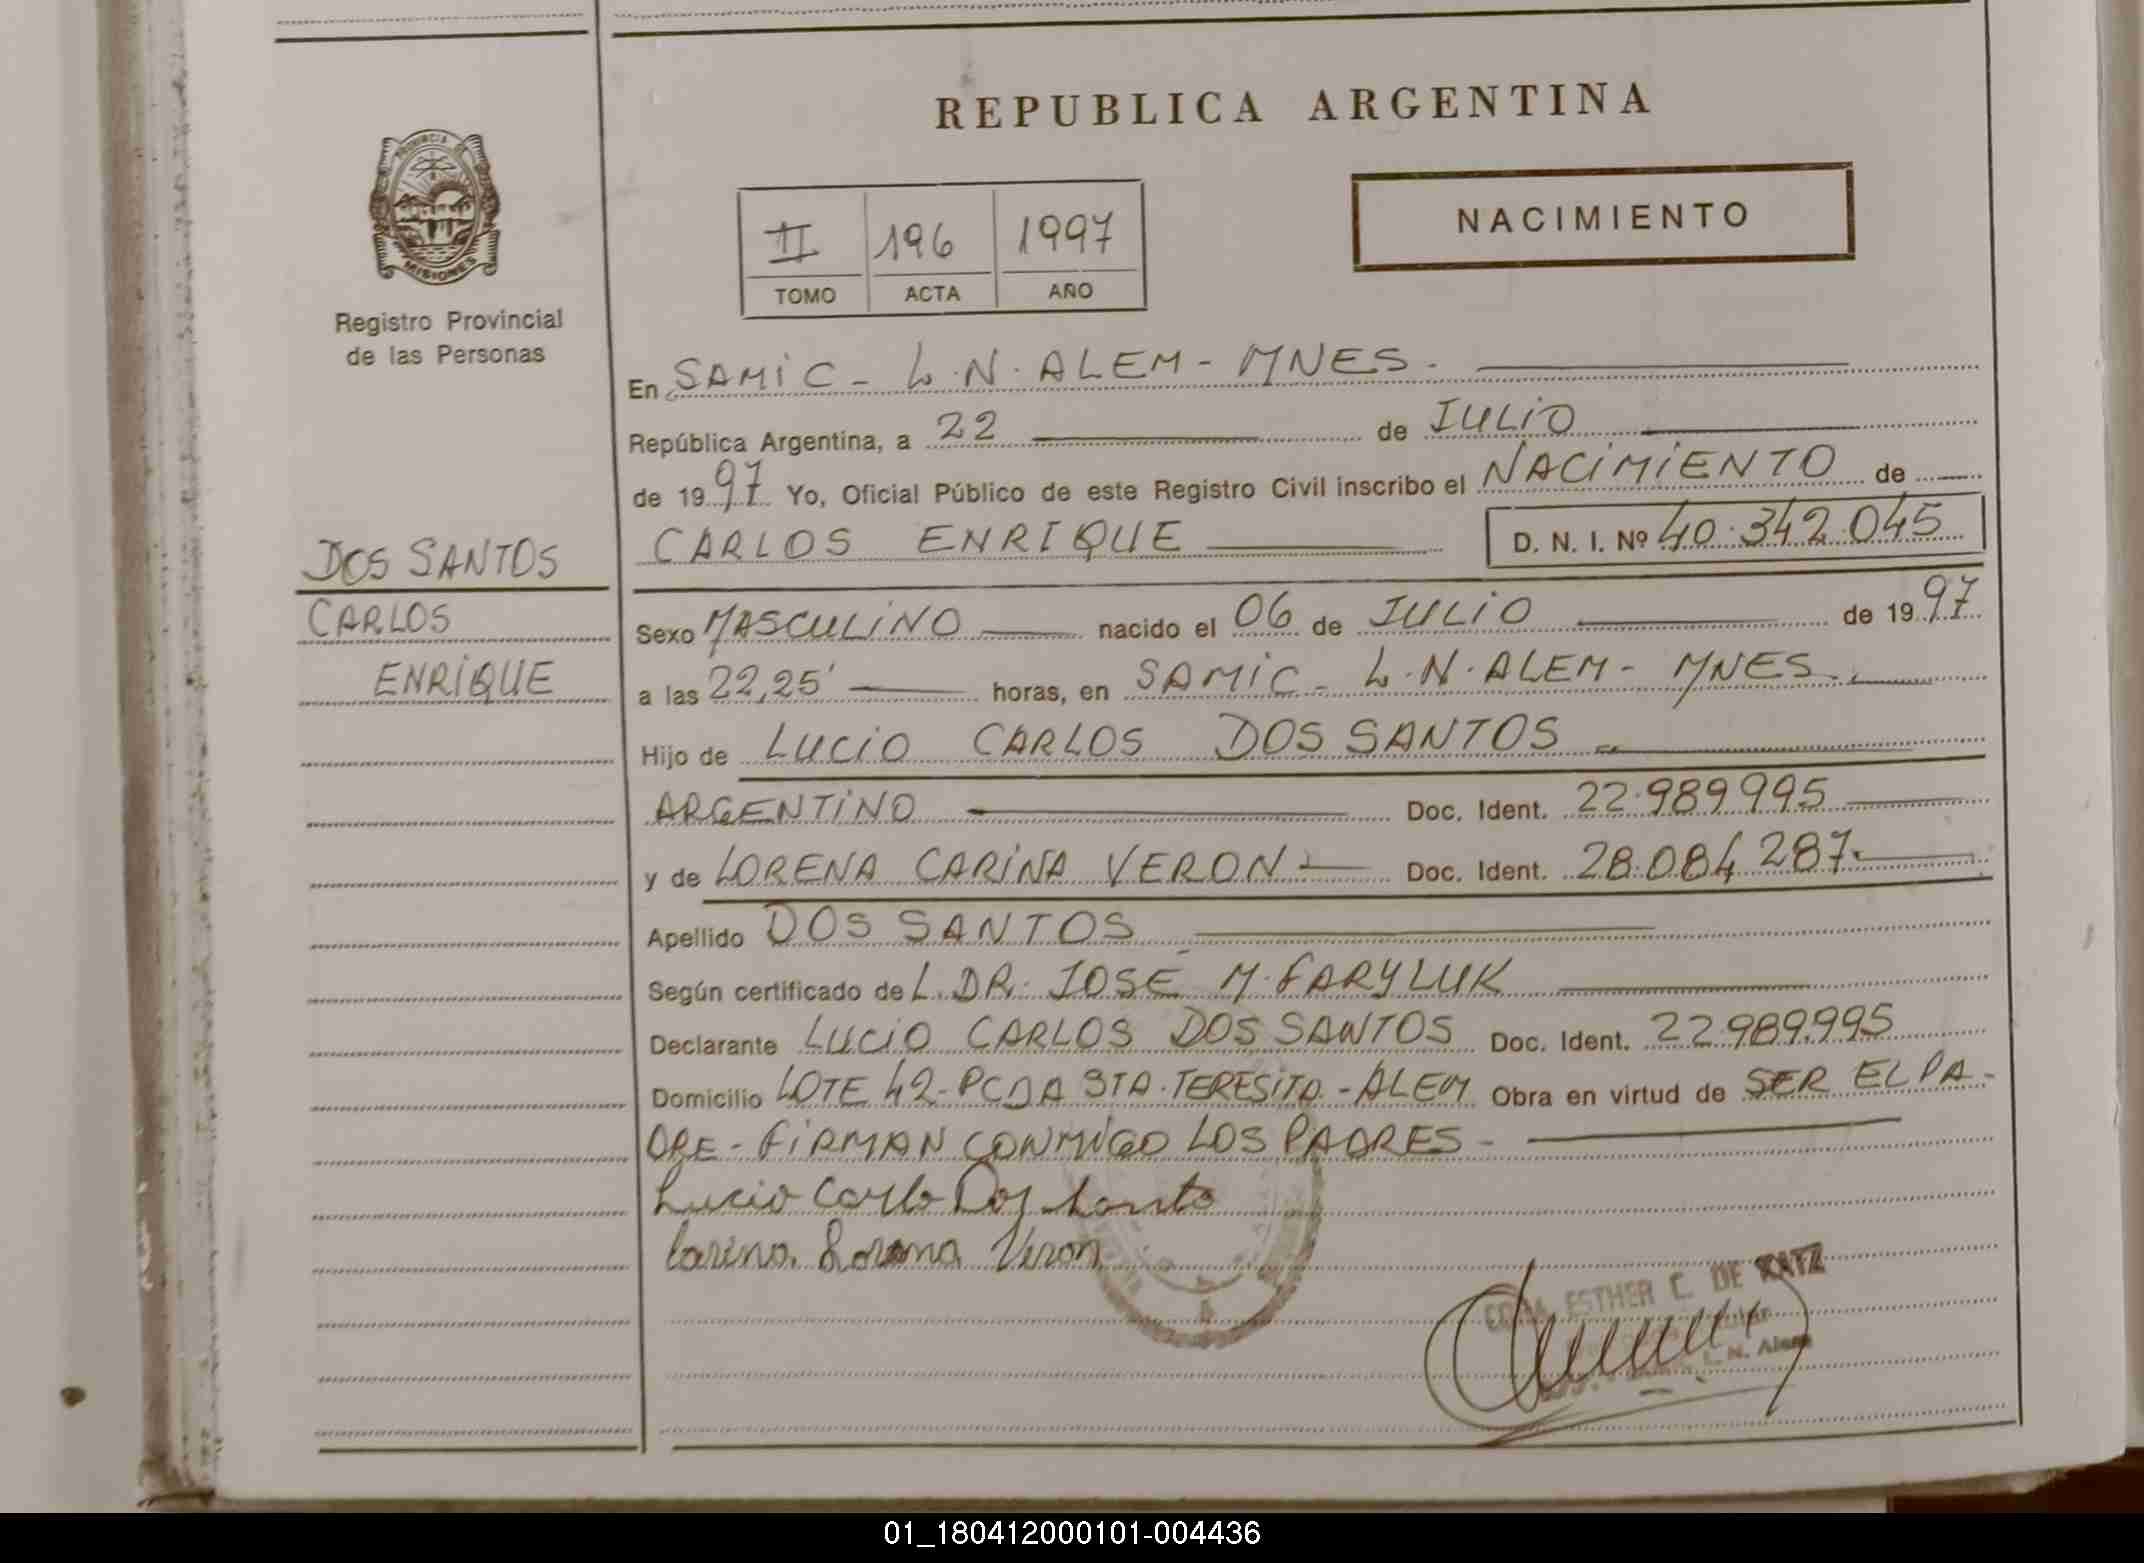 REPUBLICA ARGENTINA
PROVINCIA DE
MISIONES
Registro Provincial
de las Personas
II 196 1997
TOMO ACTA AÑO
NACIMIENTO
DOS SANTOS
CARLOS
ENRIQUE
En SAMIC - L.N. ALEM - MNES.
República Argentina, a 22 de JULIO
de 1997 Yo, Oficial Público de este Registro Civil inscribo el NACIMIENTO de
CARLOS ENRIQUE D. N. I. Nº 40.342.045
Sexo MASCULINO nacido el 06 de JULIO de 1997
a las 22,25' horas, en SAMIC - L.N. ALEM - MNES.
Hijo de LUCIO CARLOS DOS SANTOS
ARGENTINO Doc. Ident. 22.989.995
y de LORENA CARINA VERON Doc. Ident. 28.084.287
Apellido DOS SANTOS
Según certificado de L. DR. JOSÉ M. FARYLUK
Declarante LUCIO CARLOS DOS SANTOS Doc. Ident. 22.989.995
Domicilio LOTE 42 - PCDA STA. TERESITA - ALEM Obra en virtud de SER EL PA-
DRE - FIRMAN CONMIGO LOS PADRES -
Lucio Carlo Dos Santo
Carina Lorena Veron
ESTHER C. DE KATZ
L. N. Alem
01_180412000101-004436